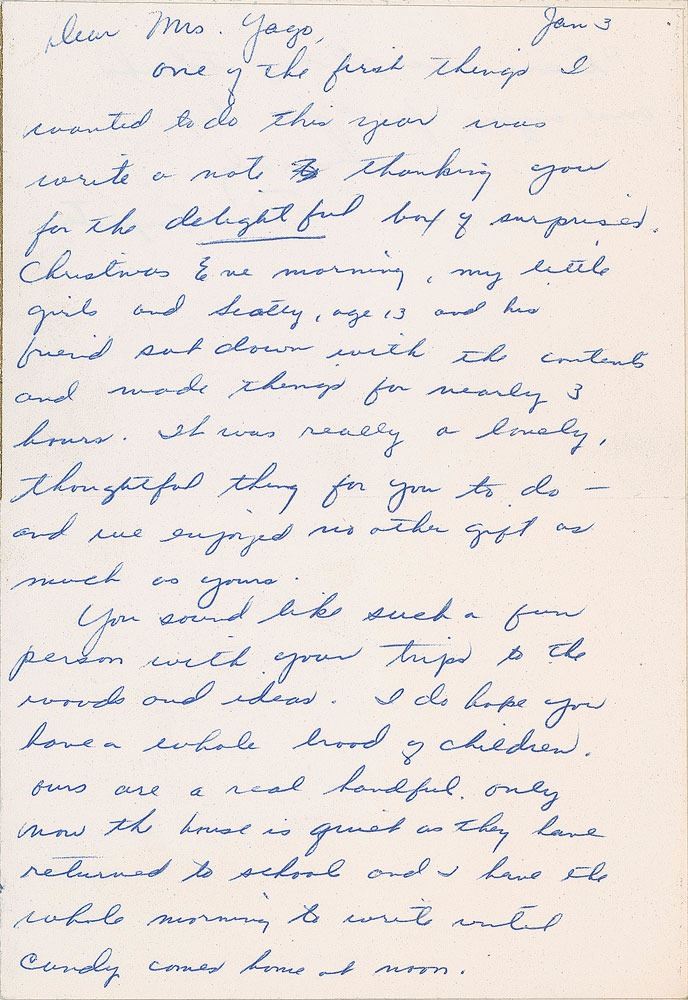 Dear Mrs. Yago, Jan 3
one of the first things I
wanted to do this year was
write a note thanking you
for the delightful box of surprises.
Christmas Eve morning, my little
girls and Scotty, age 13 and his
friend sat down with the contents
and made things for nearly 3
hours. It was really a lovely,
thoughtful thing for you to do —
and we enjoyed no other gift as
much as yours.
You sound like such a fun
person with your trips to the
woods and ideas. I do hope you
have a whole brood of children.
ours are a real handful. only
now the house is quiet as they have
returned to school and I have the
whole morning to write until
Cindy comes home at noon.